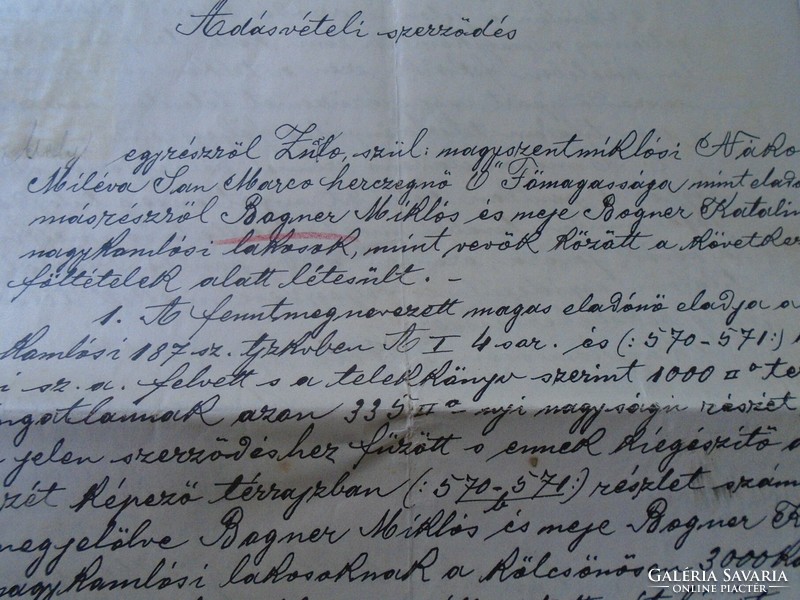 Adásvételi szerződés
egyrészről Zulo, szül: nagyszentmiklósi Náko
Miléva San Marco herczegnö Ö Főmagassága mint elad
másrészről Bogner Miklós és neje Bogner Katalin
nagykomlósi lakosok, mint vevők között a követke
föltételek alatt létesült. —
1. A fenntmegnevezett magas eladónö eladja a
Komlósi 187 sz. tjzkvben A I 4 sor. és (: 570-571:)
i sz. a. felvett s a telekkönyv szerint 1000 □° te
ngatlannak azon 335 □° nyi nagyságú részét
jelen szerződéshez fűzött s ennek kiegészítő
szét képező térrajzban (: 570-571/b :) részlet szám
megjelölve Bogner Miklós és neje Bogner K
nagykomlósi lakosoknak a kölcsönösen 3000 Ko
GALÉRIA SAVARIA
ONLINE PIACTÉR